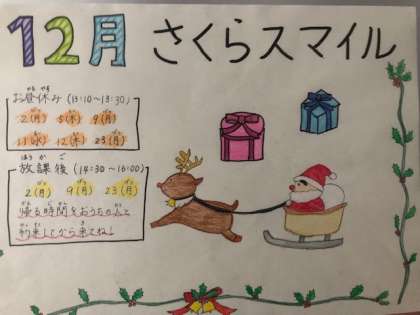 12月 さくらスマイル
お昼休み (13:10～13:30)
2(月) 5(木) 9(月)
11(水) 12(木) 23(月)
ほうかご
放課後 (14:30～16:00)
2(月) 9(月) 23(月)
帰る時間をおうちの人と
約束してから来てね!